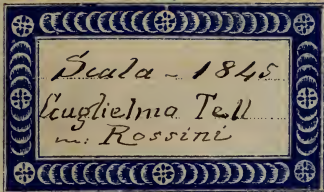 Scala - 1845
Guglielmo Tell
m: Rossini